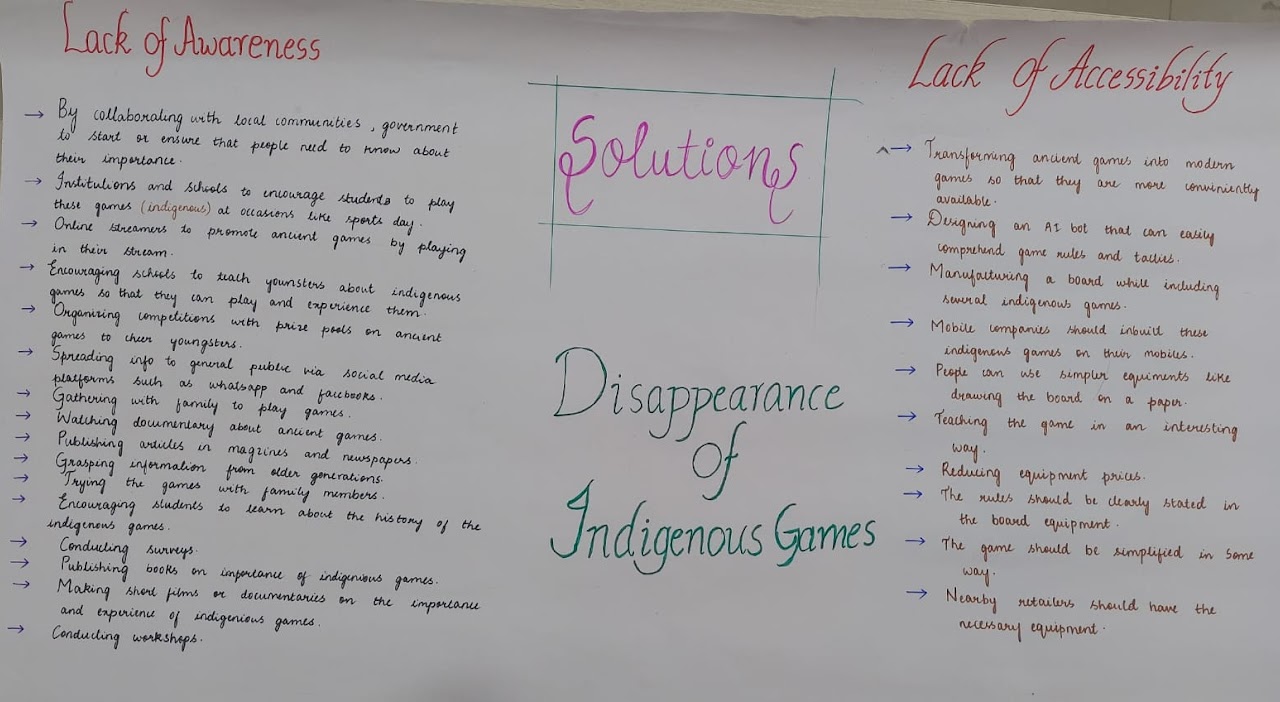 Lack of Awareness
→ By collaborating with local communities, government
to start or ensure that people need to know about
their importance.
→ Institutions and schools to encourage students to play
these games (indigenous) at occasions like sports day.
→ Online streamers to promote ancient games by playing
in their stream.
→ Encouraging schools to teach younsters about indigenous
games so that they can play and experience them.
→ Organizing competitions with prize pools on ancient
games to cheer youngsters.
→ Spreading info to general public via social media
platforms such as whatsapp and facebooks.
→ Gathering with family to play games.
→ Watching documentary about ancient games.
→ Publishing articles in magzines and newspapers.
→ Grasping information from older generations.
→ Trying the games with family members.
→ Encouraging students to learn about the history of the
indigenous games.
→ Conducting surveys.
→ Publishing books on importance of indigenious games.
→ Making short films or documentaries on the importance
and experience of indigenious games.
→ Conducting workshops.
Solutions
Disappearance
of
Indigenous Games
Lack of Accessibility
→ Transforming ancient games into modern
games so that they are more conviniently
available.
→ Designing an AI bot that can easily
comprehend game rules and tactics.
→ Manufacturing a board while including
several indigenous games.
→ Mobile companies should inbuild these
indigenous games on their mobiles.
→ People can use simpler equiments like
drawing the board on a paper.
→ Teaching the game in an interesting
way.
→ Reducing equipment prices.
→ The rules should be clearly stated in
the board equipment.
→ The game should be simplified in some
way.
→ Nearby retailers should have the
necessary equipment.